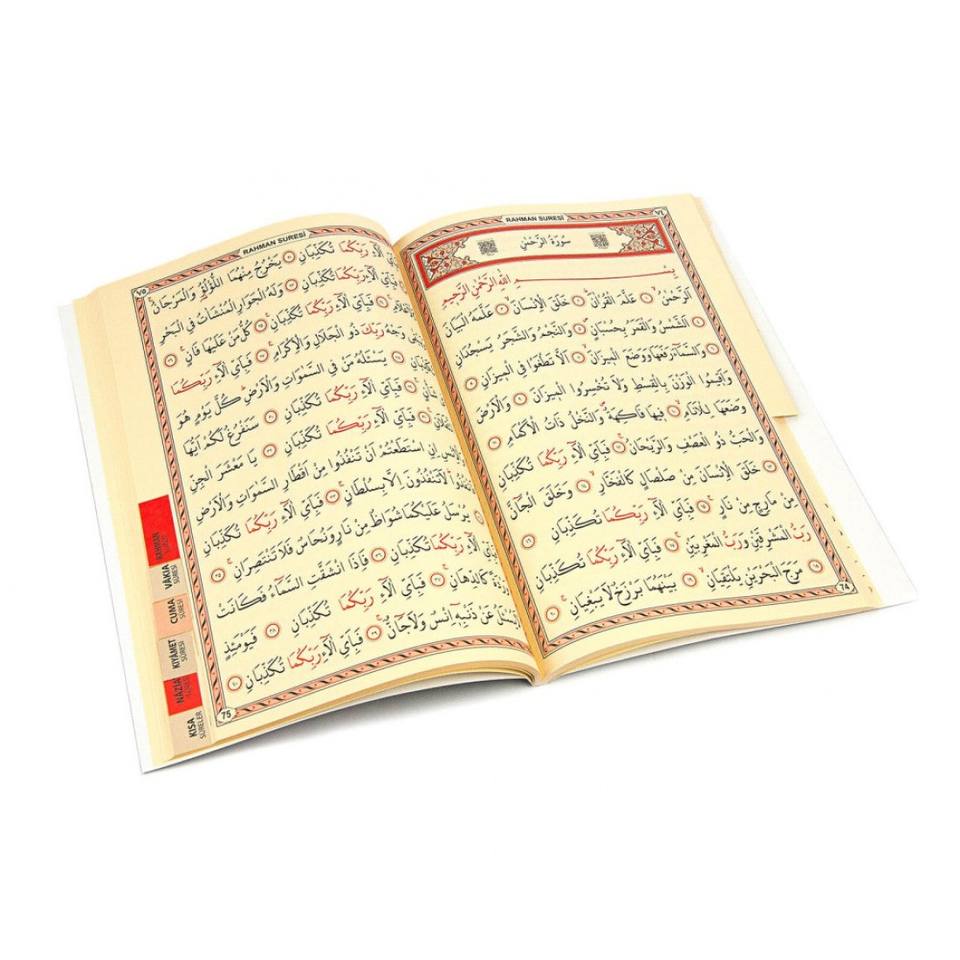 RAHMAN SURESİ
٧٤
سُورَةُ الرَّحْمٰنِ
بِسْــــــمِ اللّٰهِ الرَّحْمٰنِ الرَّحِيمِ
اَلرَّحْمٰنُ ۙ ١ عَلَّمَ الْقُرْاٰنَ ۜ ٢ خَلَقَ الْاِنْسَانَ ۙ ٣ عَلَّمَهُ الْبَيَانَ
٤ اَلشَّمْسُ وَالْقَمَرُ بِحُسْبَانٍ ۖ ٥ وَالنَّجْمُ وَالشَّجَرُ يَسْجُدَانِ
٦ وَالسَّمَٓاءَ رَفَعَهَا وَوَضَعَ الْمِيزَانَ ۙ ٧ اَلَّا تَطْغَوْا فِي الْمِيزَانِ ٨
وَاَقِيمُوا الْوَزْنَ بِالْقِسْطِ وَلَا تُخْسِرُوا الْمِيزَانَ ٩ وَالْاَرْضَ
وَضَعَهَا لِلْاَنَامِ ۙ ١٠ فِيهَا فَاكِهَةٌ ۖ وَالنَّخْلُ ذَاتُ الْاَكْمَامِ ۖ ١١
وَالْحَبُّ ذُو الْعَصْفِ وَالرَّيْحَانُ ۚ ١٢ فَبِاَيِّ اٰلَٓاءِ رَبِّكُمَا تُكَذِّبَانِ
١٣ خَلَقَ الْاِنْسَانَ مِنْ صَلْصَالٍ كَالْفَخَّارِ ۙ ١٤ وَخَلَقَ الْجَٓانَّ
مِنْ مَارِجٍ مِنْ نَارٍ ۚ ١٥ فَبِاَيِّ اٰلَٓاءِ رَبِّكُمَا تُكَذِّبَانِ ١٦
رَبُّ الْمَشْرِقَيْنِ وَرَبُّ الْمَغْرِبَيْنِ ۚ ١٧ فَبِاَيِّ اٰلَٓاءِ رَبِّكُمَا تُكَذِّبَانِ
١٨ مَرَجَ الْبَحْرَيْنِ يَلْتَقِيَانِ ۙ ١٩ بَيْنَهُمَا بَرْزَخٌ لَا يَبْغِيَانِ ۚ ٢٠
74
RAHMAN SURESİ
٧٥
اٰلَٓاءِ رَبِّكُمَا تُكَذِّبَانِ ٢١ يَخْرُجُ مِنْهُمَا اللُّؤْلُؤُ۬ وَالْمَرْجَانُ ۚ
٢٢ فَبِاَيِّ اٰلَٓاءِ رَبِّكُمَا تُكَذِّبَانِ ٢٣ وَلَهُ الْجَوَارِ الْمُنْشَاٰتُ فِي الْبَحْرِ
فَبِاَيِّ اٰلَٓاءِ رَبِّكُمَا تُكَذِّبَانِ ٢٥ كُلُّ مَنْ عَلَيْهَا فَانٍ ۚ ٢٦
وَجْهُ رَبِّكَ ذُو الْجَلَالِ وَالْاِكْرَامِ ۚ ٢٧ فَبِاَيِّ اٰلَٓاءِ رَبِّكُمَا
٢٨ يَسْـَٔلُهُ مَنْ فِي السَّمٰوَاتِ وَالْاَرْضِ ۜ كُلَّ يَوْمٍ هُوَ
٢٩ فَبِاَيِّ اٰلَٓاءِ رَبِّكُمَا تُكَذِّبَانِ ٣٠ سَنَفْرُغُ لَكُمْ اَيُّهَ
٣١ فَبِاَيِّ اٰلَٓاءِ رَبِّكُمَا تُكَذِّبَانِ ٣٢ يَا مَعْشَرَ الْجِنِّ
اِنِ اسْتَطَعْتُمْ اَنْ تَنْفُذُوا مِنْ اَقْطَارِ السَّمٰوَاتِ وَالْاَرْضِ
لَا تَنْفُذُونَ اِلَّا بِسُلْطَانٍ ۚ ٣٣ فَبِاَيِّ اٰلَٓاءِ رَبِّكُمَا تُكَذِّبَانِ
٣٤ يُرْسَلُ عَلَيْكُمَا شُوَاظٌ مِنْ نَارٍ وَنُحَاسٌ فَلَا تَنْتَصِرَانِ ۚ ٣٥
اٰلَٓاءِ رَبِّكُمَا تُكَذِّبَانِ ٣٦ فَاِذَا انْشَقَّتِ السَّمَٓاءُ فَكَانَتْ
كَالدِّهَانِ ۚ ٣٧ فَبِاَيِّ اٰلَٓاءِ رَبِّكُمَا تُكَذِّبَانِ ٣٨ فَيَوْمَئِذٍ
عَنْ ذَنْبِهٖٓ اِنْسٌ وَلَا جَٓانٌّ ۚ ٣٩ فَبِاَيِّ اٰلَٓاءِ رَبِّكُمَا تُكَذِّبَانِ ٤٠
75
RAHMAN
VÂKIA SÛRESİ
CUMA SÛRESİ
KIYÂMET SÛRESİ
NÂZİA
KISA SÛRELER